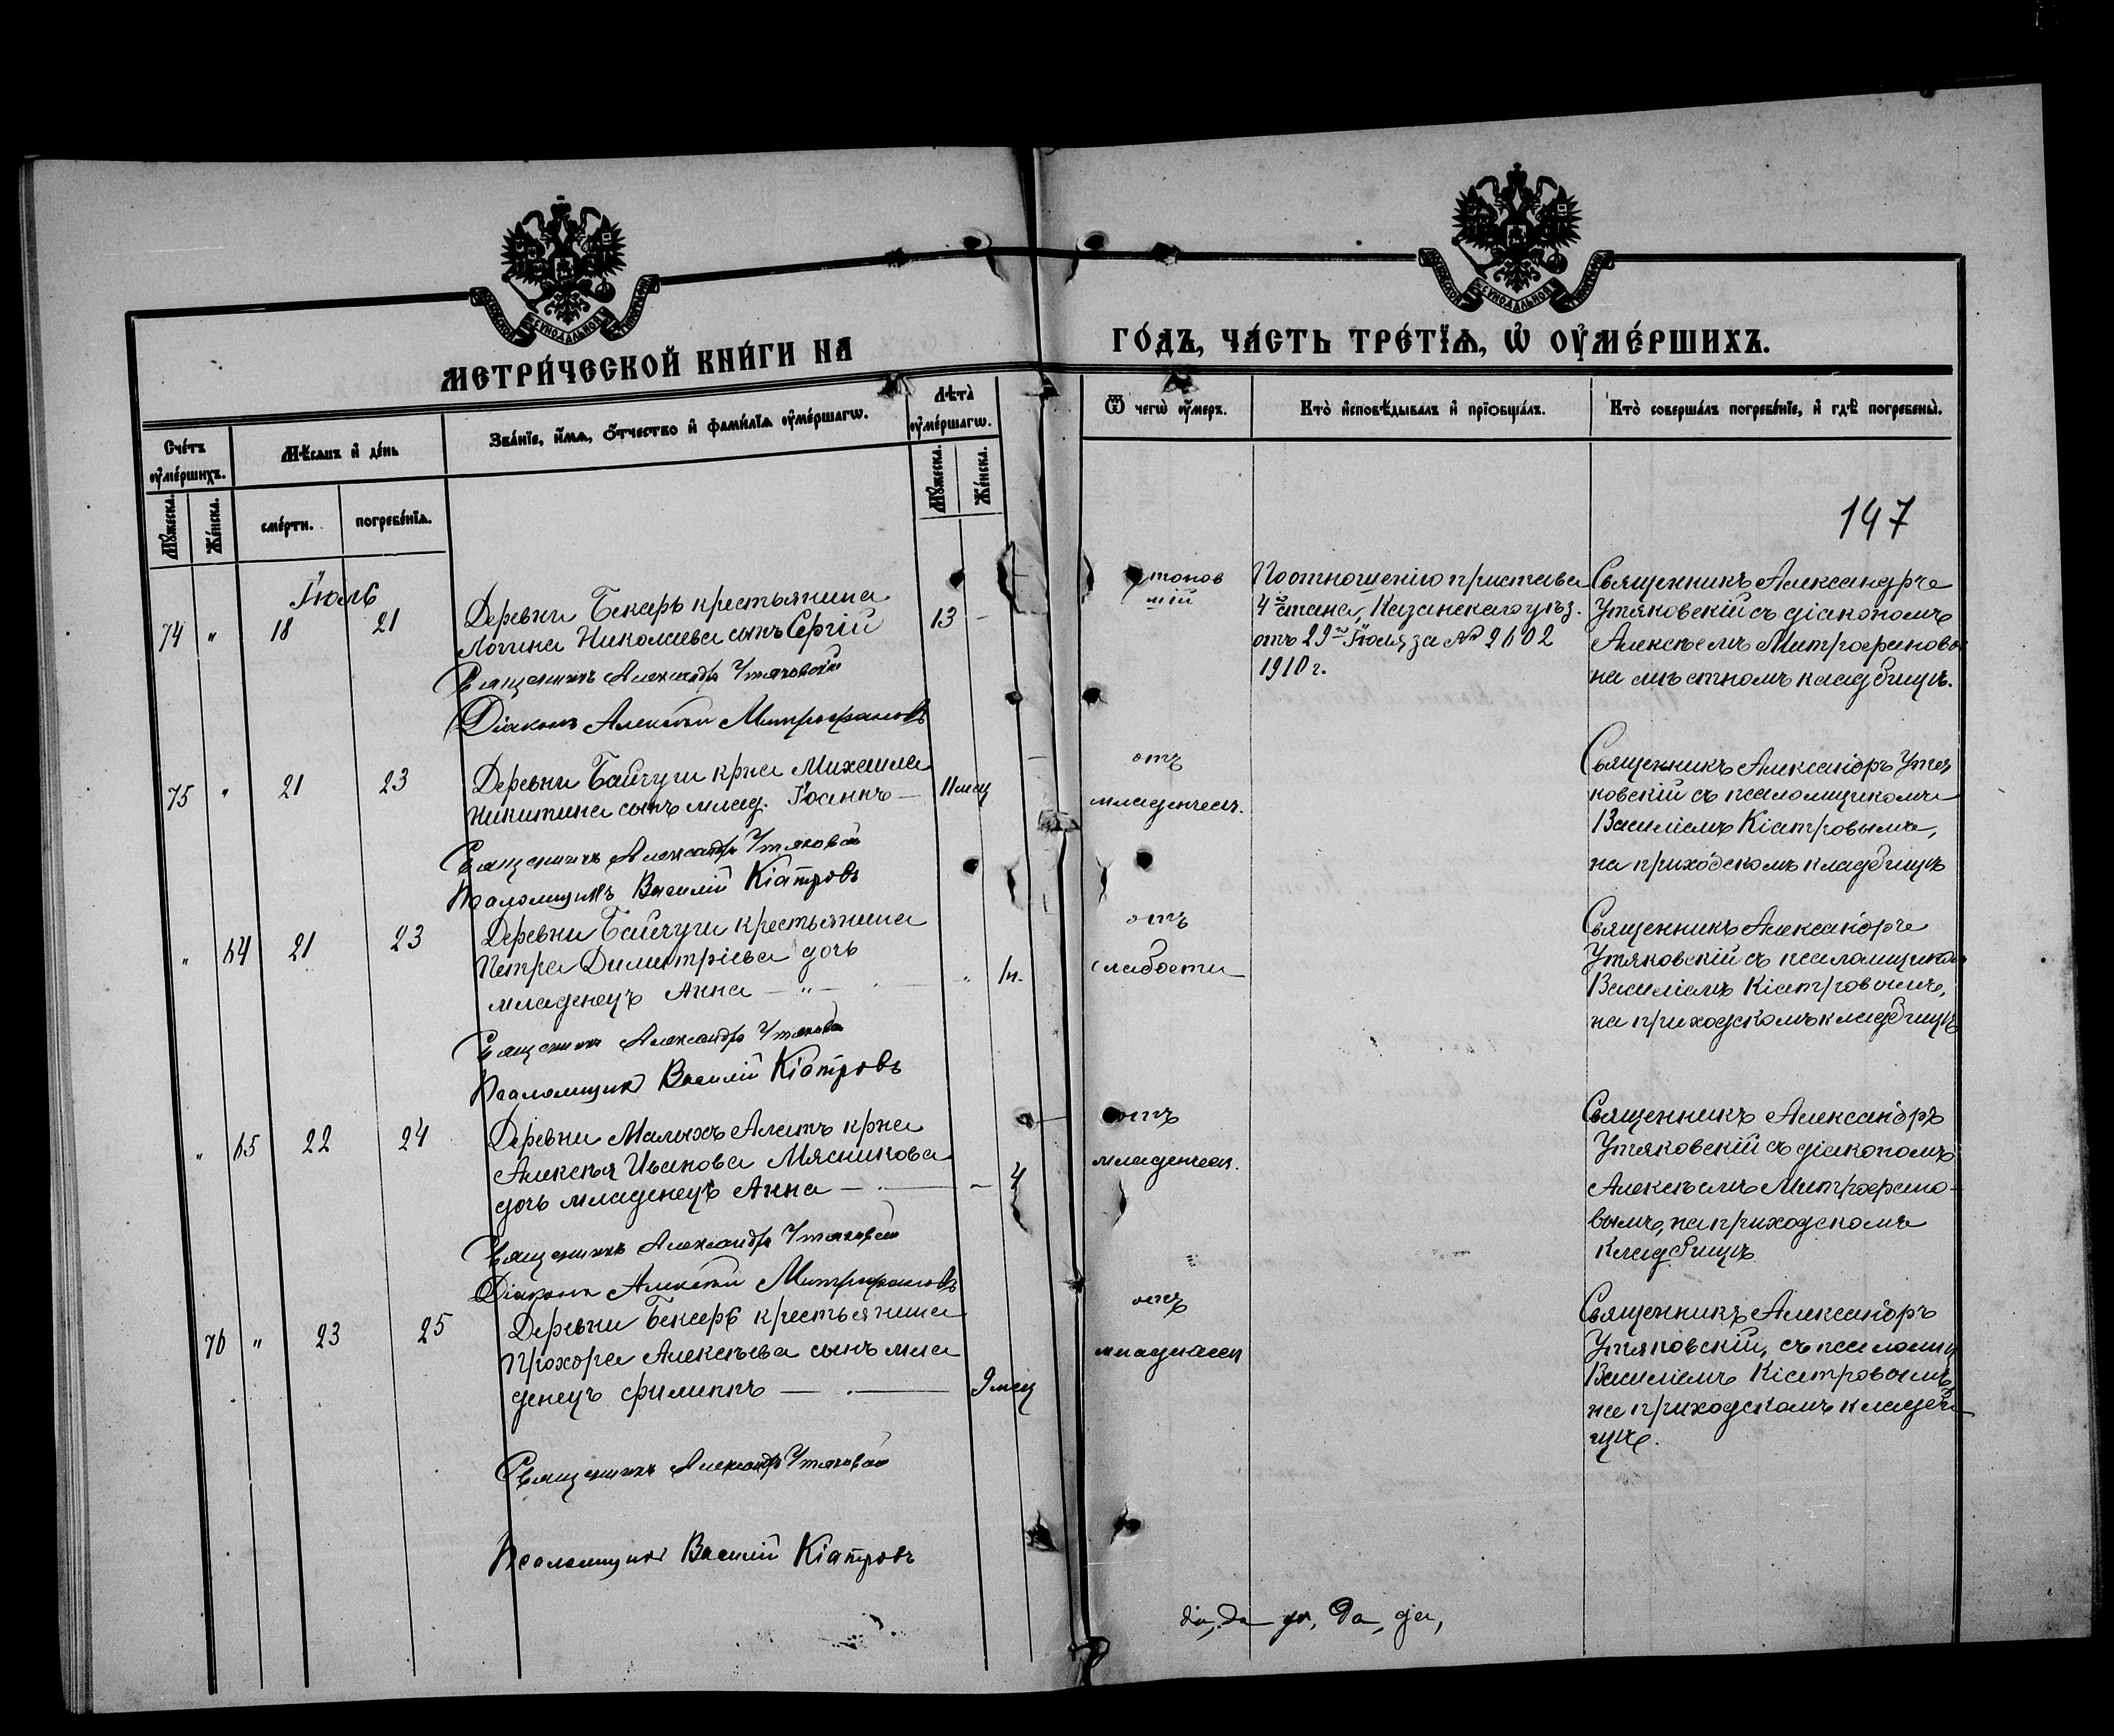 МЕТРИ́ЧЕСКОЙ КНИ́ГИ НА
ГО́ДЪ, ЧА́СТЬ ТРЕ́ТЇѦ, Ѡ҆ ОУ҆МЕ́РШИХЪ.
Сче́тъ оу҆ме́ршихъ.
Мѣ́сѧцъ и҆ де́нь
Зва́нїе, и҆́мѧ, о҆́тчество и҆ фами́лїѧ оу҆ме́ршагѡ.
Лѣта̀ оу҆ме́ршагѡ.
Ѿ чегѡ̀ оу҆́меръ.
Кто̀ и҆сповѣ́дывалъ и҆ прїѡбща́лъ.
Кто̀ соверша́лъ погребе́нїе, и҆ гдѣ̀ погребены̀.
Мꙋ́жеска.
Же́нска.
сме́рти.
погребе́нїѧ.
Мꙋ́жеска.
Же́нска.
147
Іюль
74 " 18 21
Деревни Бекарь крестьянина
Логина Николаева сынъ Сергій
13 -
Священникъ Александръ Утяковскій
Діаконъ Алексѣй Митрофановъ
По отношенію пристава
4го стана, Казанскаго уѣз.
отъ 29го Іюля за № 2602
1910 г.
Священникъ Александръ
Утяковскій съ діакономъ
Алексѣемъ Митрофановы
на мѣстномъ кладбищѣ.
75 " 21 23
Деревни Байчуги крна Михаила
Никитина сынъ млад. Іоаннъ —
11 мец
Священникъ Александръ Утяковскій
Псаломщикъ Василій Кіатровъ
отъ
младенческ.
Священникъ Александръ Утя
ковскій съ псаломщикомъ
Василіемъ Кіатровымъ,
на приходскомъ кладбищѣ
" 64 21 23
Деревни Байчуги крестьянина
Петра Димитріева дочь
младенецъ Анна — " —
" 1н.
Священникъ Александръ Утяковскій
Псаломщикъ Василій Кіатровъ
отъ
слабости
Священникъ Александръ
Утяковскій съ псаломщиком
Василіемъ Кіатровымъ,
на приходскомъ кладбищѣ
" 65 22 24
Деревни Малыхъ Алатъ крна
Алексѣя Иванова Мясникова
дочь младенецъ Анна —
- 4
Священникъ Александръ Утяковскій
Діаконъ Алексѣй Митрофановъ
отъ
младенческ.
Священникъ Александръ
Утяковскій съ діакономъ
Алексѣемъ Митрофано-
вымъ, на приходскомъ
кладбищѣ
76 " 23 25
Деревни Бекарь крестьянина
Прохора Алексѣева сынъ мла
денецъ Филиппъ —
9 мец
Священникъ Александръ Утяковскій
Псаломщикъ Василій Кіатровъ
отъ
младенческ
Священникъ Александръ
Утяковскій, съ псаломщ
Василіемъ Кіатровымъ,
на приходскомъ кладби
щѣ.
да, да, да,